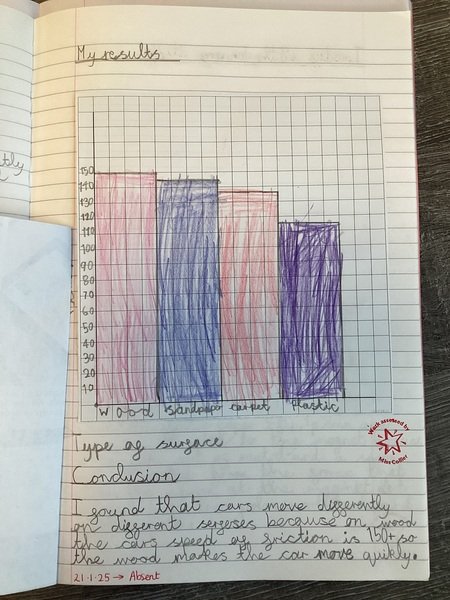 My results
150
140
130
120
110
100
90
80
70
60
50
40
30
20
10
Wood sandpaper carpet Plastic
Type of surface
Work assessed by
Miss Collier
Condusion
I found that cars move differently
on different serfeses because on wood
the cars speed of friction is 150+so
the wood makes the car move quikly.
21.1.25 → Absent